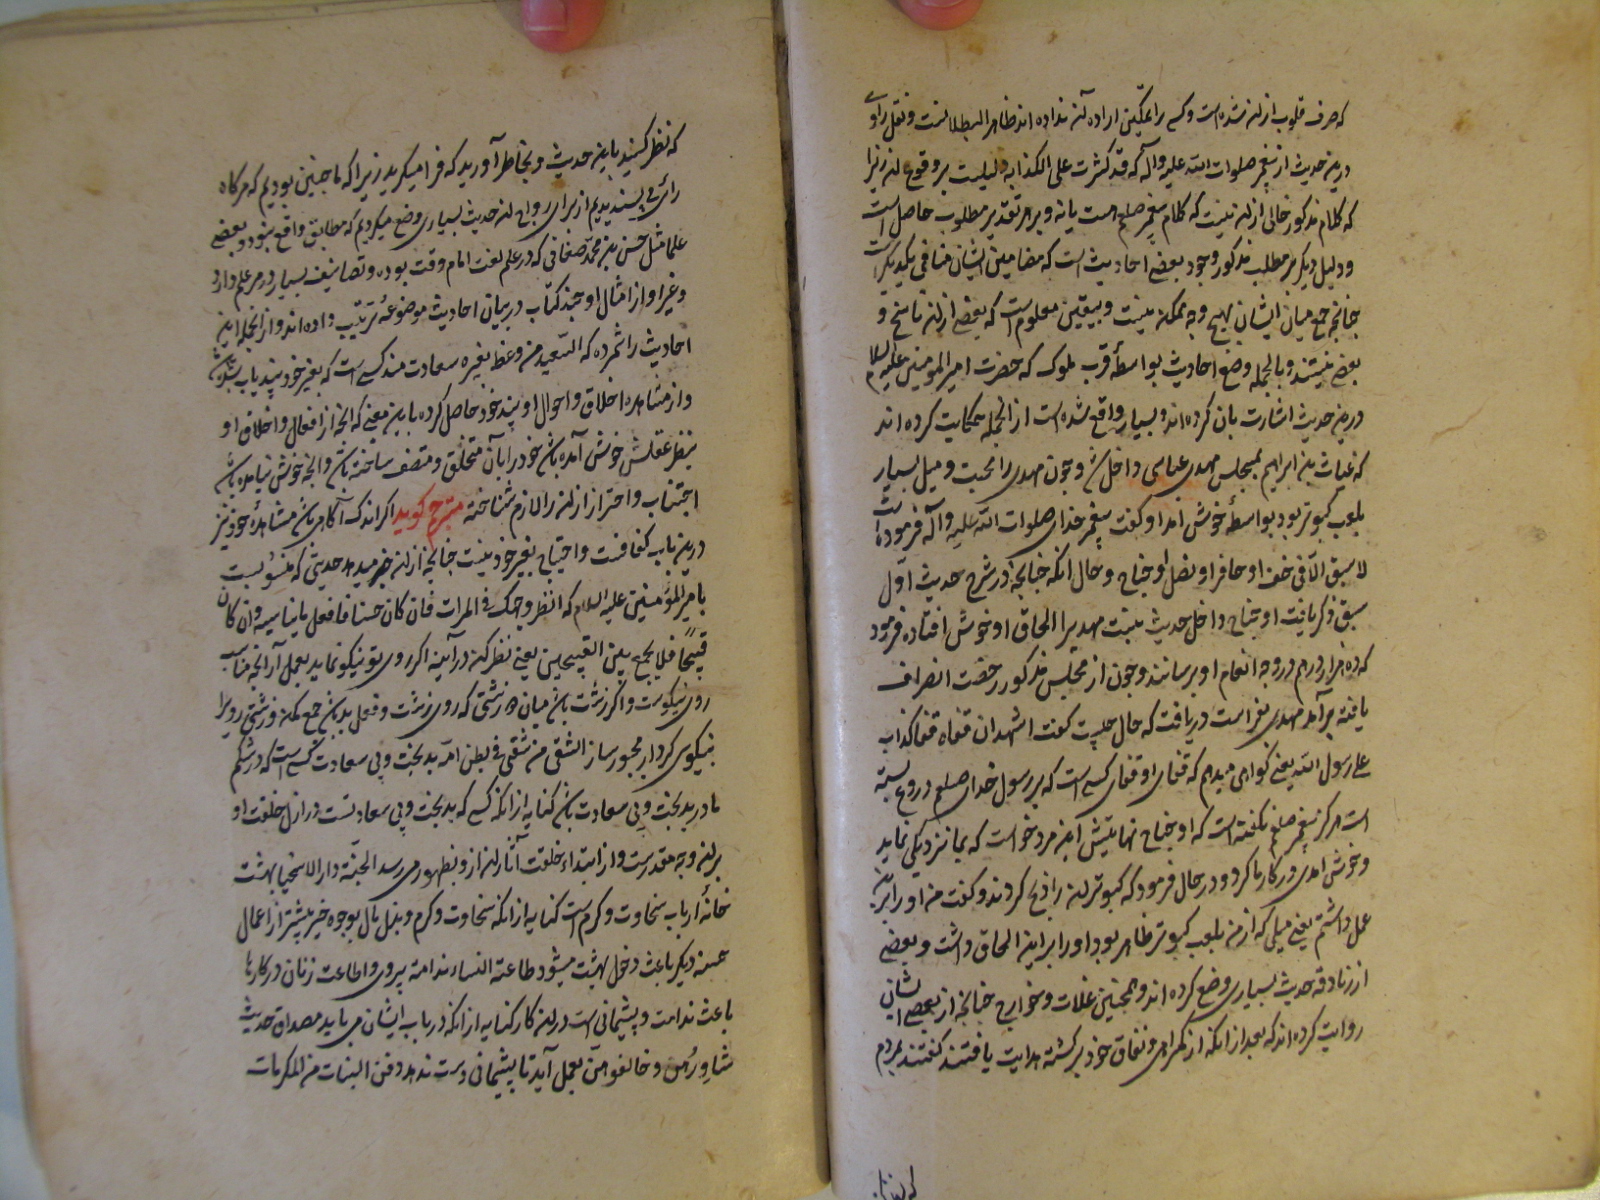 که صرف قلوب ازان نشده است و کسے را تمکین اراده آن نداده اند ظاهر البطلانست و نقل راوے
درین حدیث از پیغمبر صلوات الله علیه وآله که قد کثرت علی الکذابه دلیلیست بر وقوع ان زیرا
که کلام مذکور خالی ازان نیست که کلام پیغمبر صلعم هست یا نه و بر هر تقدیر مطلوب حاصل است
و دلیل دیگر بر مطلب مذکور وجود بعضے احادیث است که مضامین ایشان منافی یکدیگر است
چنانچه جمع میان ایشان بهیچ وجه ممکن نیست و بیقین معلوم است که بعضے ازان ناسخ و
بعضے نیستند و بالجمله وضع احادیث بواسطهٔ قرب ملوک که حضرت امیر المومنین علیه السلام
درین حدیث اشارت بان کرده اند بسیار واقع شده است از انجمله حکایت کرده اند
که غیاث بن ابراهیم بمجلس مهدی عباسی داخل شد و چون مهدی را محبت و میل بسیار
بلعب کبوتر بود بواسطهٔ خوش آمد او گفت پیغمبر خدای صلوات الله علیه وآله فرموده است
لا سبق الا فی خف او حافر او نصل او جناح و حال انکه چنانچه در شرح حدیث اول
سبق ذکر یافت او جناح داخل حدیث نیست مهدیرا الحاق او خوش افتاده فرمود
که ده هزار درم در وجه انعام او برسانند و چون از مجلس مذکور رخصت انصراف
یافته برآمد مهدی بفراست دریافت که حال چیست گفت اشهد ان قفاه قفا کذاب
علی رسول الله یعنے گواهی میدهم که قفای او قفای کسے است که بر رسول خدای صلعم دروغ بسته
است هرگز پیغمبر صلعم نگفته است که او جناح نهایتش این مرد خواست که بما نزدیکی نماید
و خوش آمدی در کار ما کرد و در حال فرمود که کبوتران را ذبح کردند و گفت من او را برین
عمل داشتم یعنے میلی که از من بلعب کبوتر ظاهر بود او را بر این الحاق داشت و بعضے
از زنادقه حدیث بسیاری وضع کرده اند و همچنین غلات و خوارج چنانچه از بعضے ایشان
روایت کرده اند که بعد از انکه از گمراهی و نفاق خود برگشته هدایت یافتند گفتند بمردم
که نظر کنید باین حدیث و بخاطر آورید که فرا میگیرید زیرا که ما چنین بودیم که هرگاه
رائی می پسندیدیم از برای رواج ان حدیث بسیاری وضع میکردیم که مطابق واقع نبود و بعضے
علما مثل حسن بن محمد صغانی که در علم لغت امام وقت بوده و تصانیف بسیار در هر علم دارد
و غیر او از امثال او چند کتاب در بیان احادیث موضوعه ترتیب داده اند و از انجمله این
احادیث را شمرده که السعید من وعظ بغیره سعادت مند کسے است که بغیر خود پند یاب شد
و از مشاهده اخلاق و احوال او پند خود حاصل کرده باین معنے که انچه از افعال و اخلاق او
بنظر عقلش خوش آمده باشد خود را بآن متخلق و متصف ساخته باشد و انچه خوش نیامده باشد
اجتناب و احتراز ازان را لازم شناخته مترجم گوید اگر اندک آگاهی باشد مشاهدهٔ خود نیز
درین باب کفافست و احتیاج بغیر خود نیست چنانچه ازان خبر میدهد حدیثی که منسوبست
بامیر المؤمنین علیه السلام که انظر وجهک فی المرات فان کان حسنا فافعل ما یناسبه و ان کان
قبیحًا فلا یجمع بین القبیحین یعنے نظر کن در آینه اگر روی تو نیکو نماید بعمل آر انچه مناسب
روی نیکوست و اگر زشت باشد میان دو زشتی که روی زشت و فعل بد باشد جمع مکن و زشتی رو را
بنیکوی کردار مجبور ساز الشقی من شقی فی بطن امه بدبخت و بی سعادت کسے است که در شکم
مادر بدبخت و بی سعادت باشد کنایه از انکه کسے که بدبخت و بی سعادتست در ازل خلقت او
بران وجه مقدرست و از ابتداء خلقت آثار ان ازو بظهور می رسد الجنة دار الاسخیا بهشت
خانهٔ ارباب سخاوت و کرم است کنایه از انکه سخاوت و کرم و بذل مال بوجوه خیر بیشتر از اعمال
حسنه دیگر باعث دخول بهشت میشود طاعة النساء ندامة پیروی و اطاعت زنان در کارها
باعث ندامت و پشیمانی است در ان کار کنایه از انکه در باب ایشان می باید مصداق حدیث
شاوروهن و خالفوهن بعمل آید تا پشیمانی دست ندهد دفن البنات من المکرمات